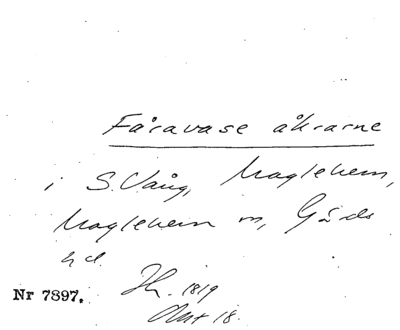 Fåravase åkrarne
i S. Vång, Maglehem,
Maglehem sn, Gärds
hd.
Nr 7397. Hh. 1819
Akt 18.